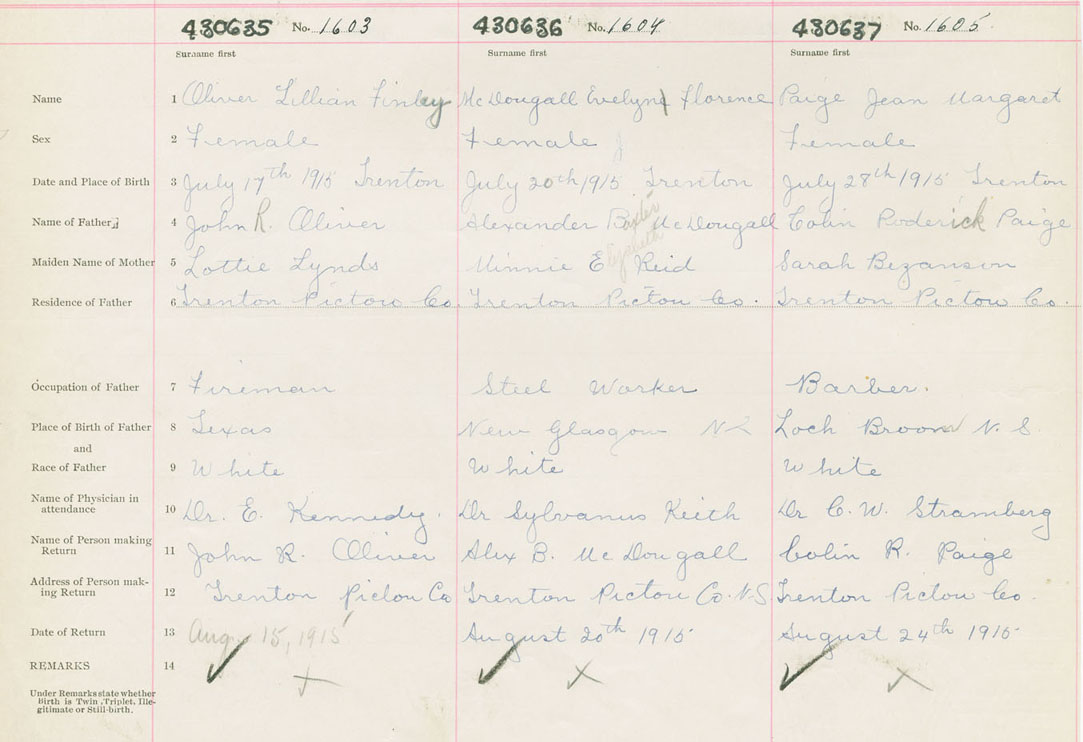 430635 No. 1603 430636 No. 1604 430637 No. 1605
Surname first Surname first Surname first
Name 1 Oliver Lillian Finley McDougall Evelyn Florence Paige Jean Margaret
Sex 2 Female Female Female
Date and Place of Birth 3 July 17th 1915 Trenton July 20th 1915 Trenton July 28th 1915 Trenton
Name of Father 4 John R. Oliver Alexander Baxter McDougall Colin Roderick Paige
Maiden Name of Mother 5 Lottie Lynds Minnie Elizabeth Reid Sarah Bezanson
Residence of Father 6 Trenton Pictou Co. Trenton Pictou Co. Trenton Pictou Co.
Occupation of Father 7 Fireman Steel Worker Barber.
Place of Birth of Father 8 Texas New Glasgow NS Loch Broom N. S.
and
Race of Father 9 White White White
Name of Physician in
attendance 10 Dr. E. Kennedy. Dr Sylvanus Keith Dr C. W. Stramberg
Name of Person making
Return 11 John R. Oliver Alex B. McDougall Colin R. Paige
Address of Person mak-
ing Return 12 Trenton Pictou Co Trenton Pictou Co. N.S Trenton Pictou Co.
Date of Return 13 Aug 15, 1915 August 20th 1915 August 24th 1915
REMARKS 14
Under Remarks state whether
Birth is Twin, Triplet, Ille-
gitimate or Still-birth.